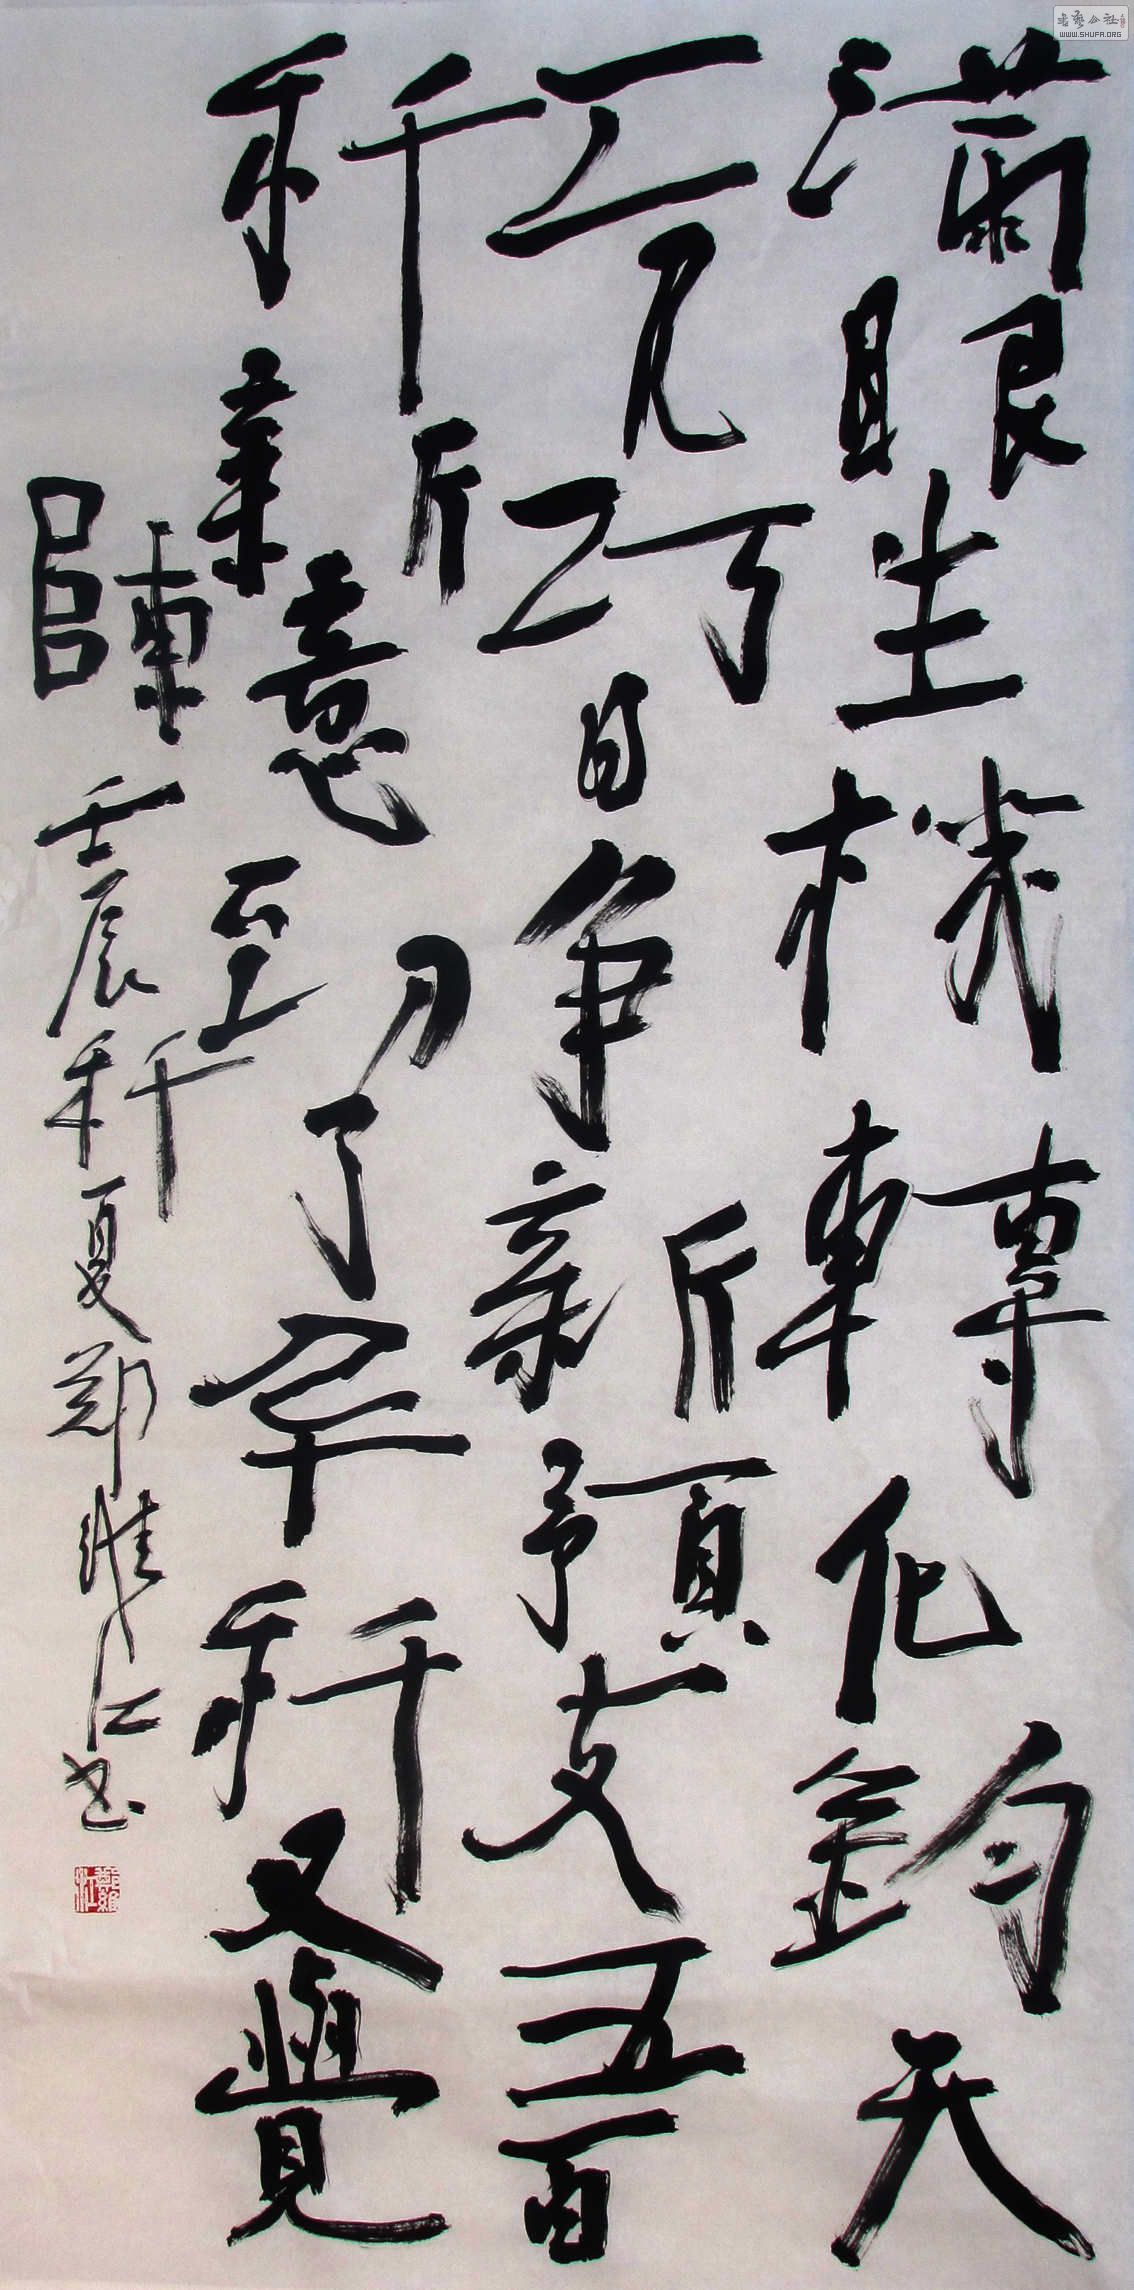 滿眼生機轉化鈞天
工人巧日爭新預支五百
年新意到了千年又覺
陳 壬辰年夏鄭維江書
鄭維江
書藝公社
WWW.SHUFA.ORG